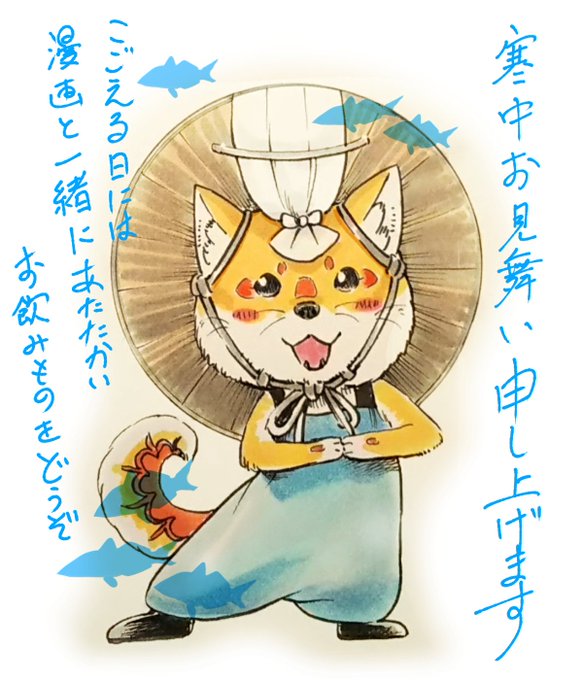 寒中お見舞い申し上げます
こごえる日には
漫画と一緒にあたたかい
お飲みものをどうぞ